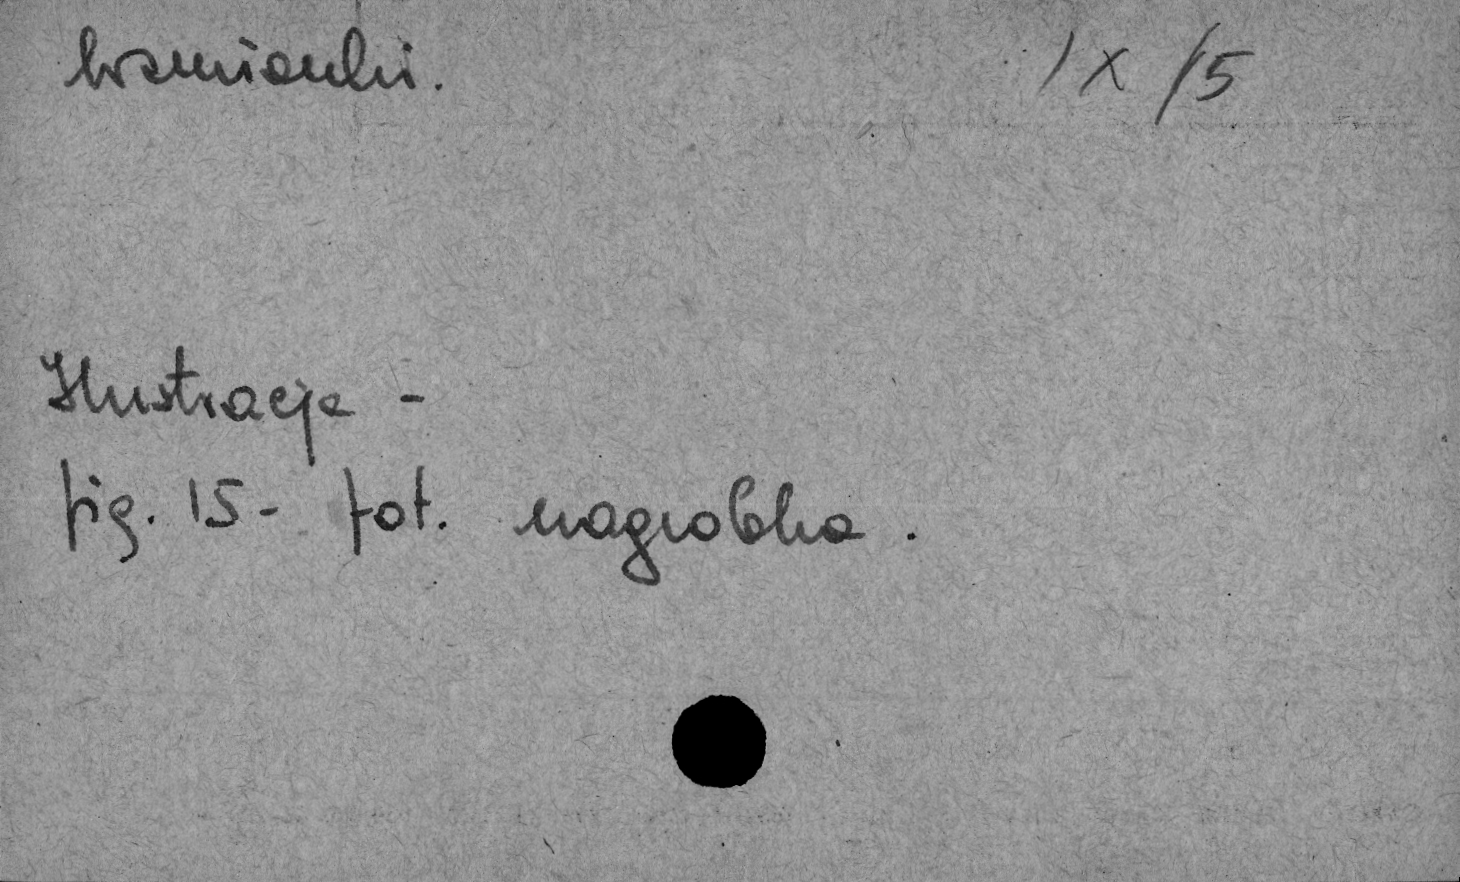 wzmianki. IX/5
Ilustracje -
fig. 15- fot. nagrobka.